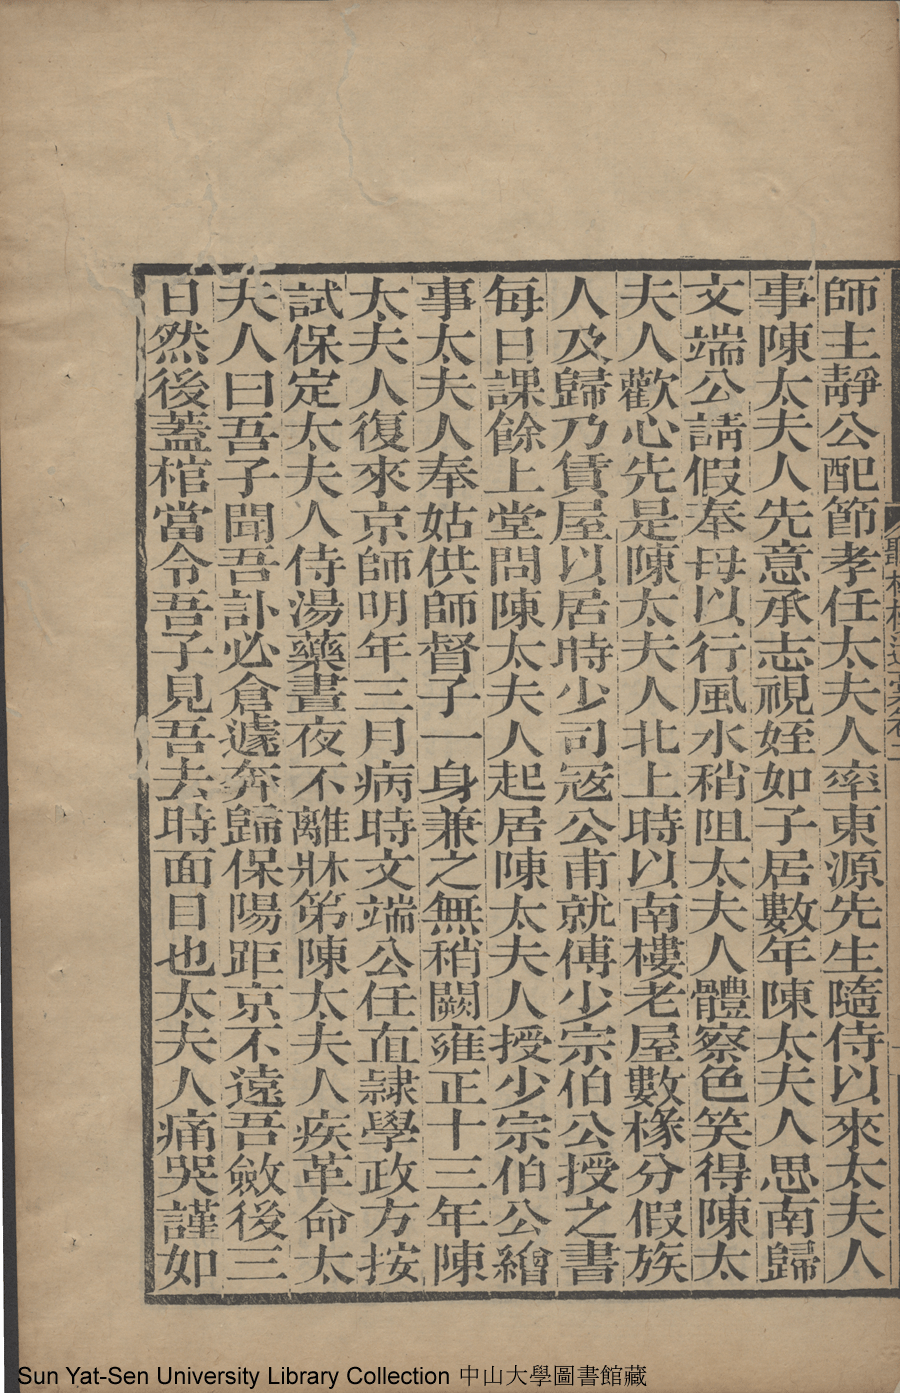 師主靜公配節孝任太夫人率東源先生隨侍以來太夫人
事陳太夫人先意承志視姪如子居數年陳太夫人思南歸
文端公請假奉母以行風水稍阻太夫人體察色笑得陳太
夫人歡心先是陳太夫人北上時以南樓老屋數椽分假族
人及歸乃賃屋以居時少司寇公甫就傅少宗伯公授之書
每日課餘上堂問陳太夫人起居陳太夫人授少宗伯公繪
事太夫人奉姑供師督子一身兼之無稍闕雍正十三年陳
太夫人復來京師明年三月病時文端公任直隷學政方按
試保定太夫人侍湯藥晝夜不離牀第陳太夫人疾革命太
夫人曰吾子聞吾訃必倉遽奔歸保陽距京不遠吾斂後三
日然後蓋棺當令吾子見吾去時面目也太夫人痛哭謹如
Sun Yat-Sen University Library Collection 中山大學圖書館藏